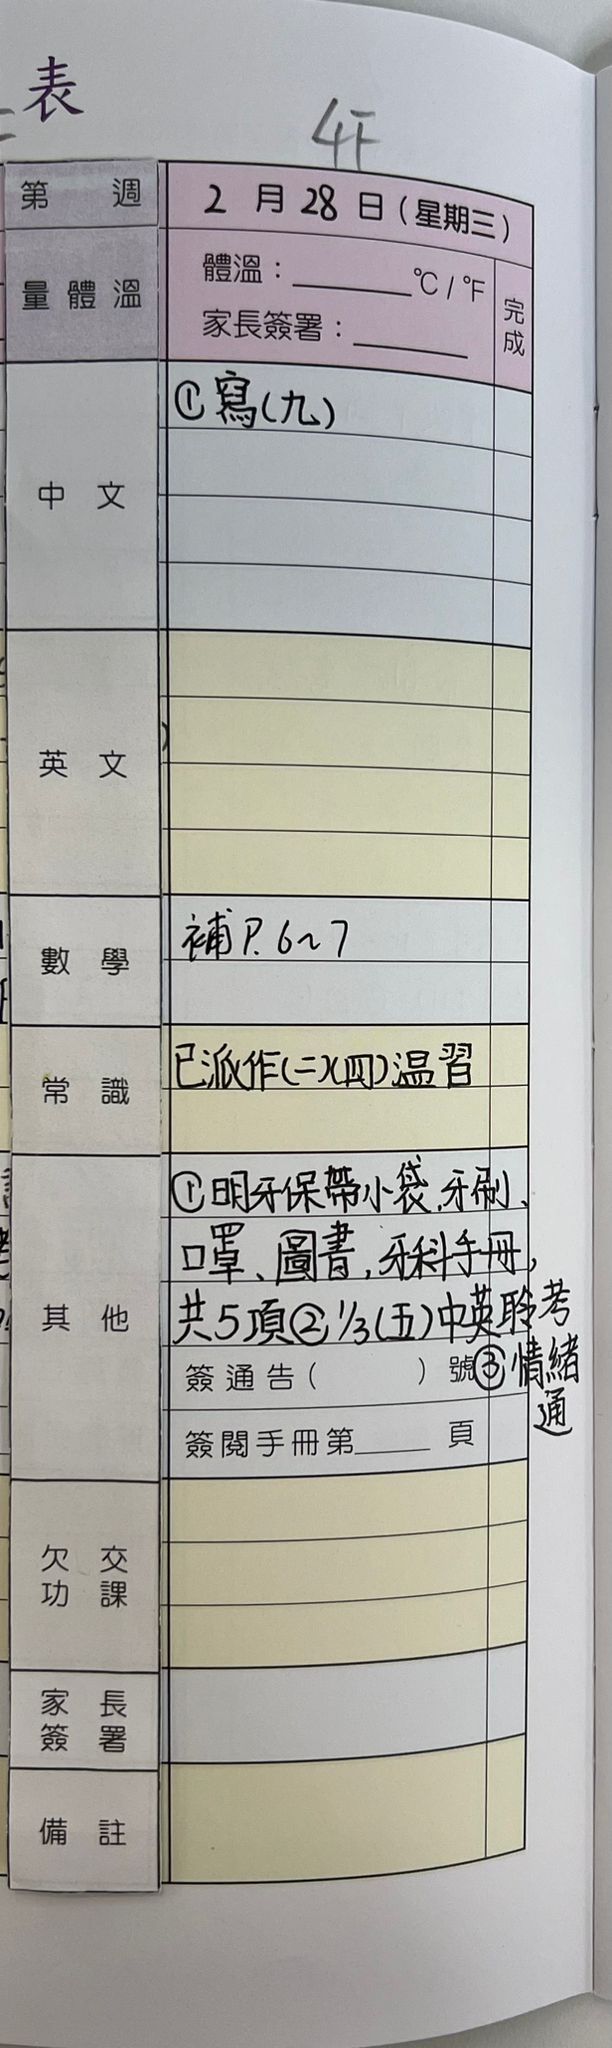 表
4F
第 週
2 月 28 日 (星期三)
量體溫
體溫：______°C / °F
家長簽署：______
完成
中文
①寫(九)
英文
數學
補P.6~7
常識
已派作(二)(四)温習
其他
①明牙保帶小袋,牙刷、
口罩、圖書,牙科手冊,
共5項②1/3(五)中英聆考
簽通告( )號③情緒
通
簽閱手冊第____頁
欠交
功課
家長
簽署
備註